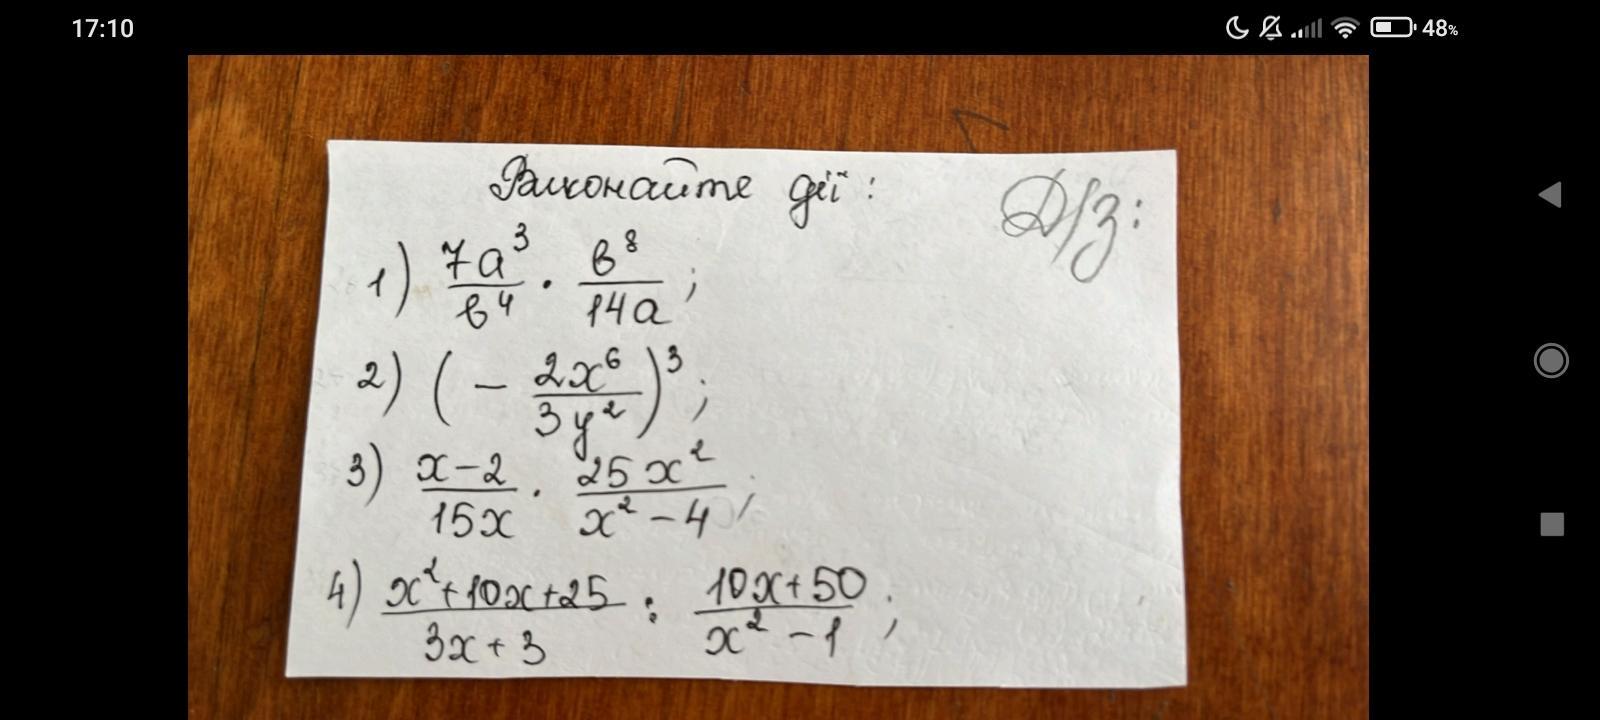 17:10
48%
Виконайте дії:
Д/з:
1) 7a³/b⁴ · b⁸/14a;
2) (- 2x⁶/3y²)³;
3) x-2/15x · 25x²/x²-4;
4) x²+10x+25/3x+3 : 10x+50/x²-1;